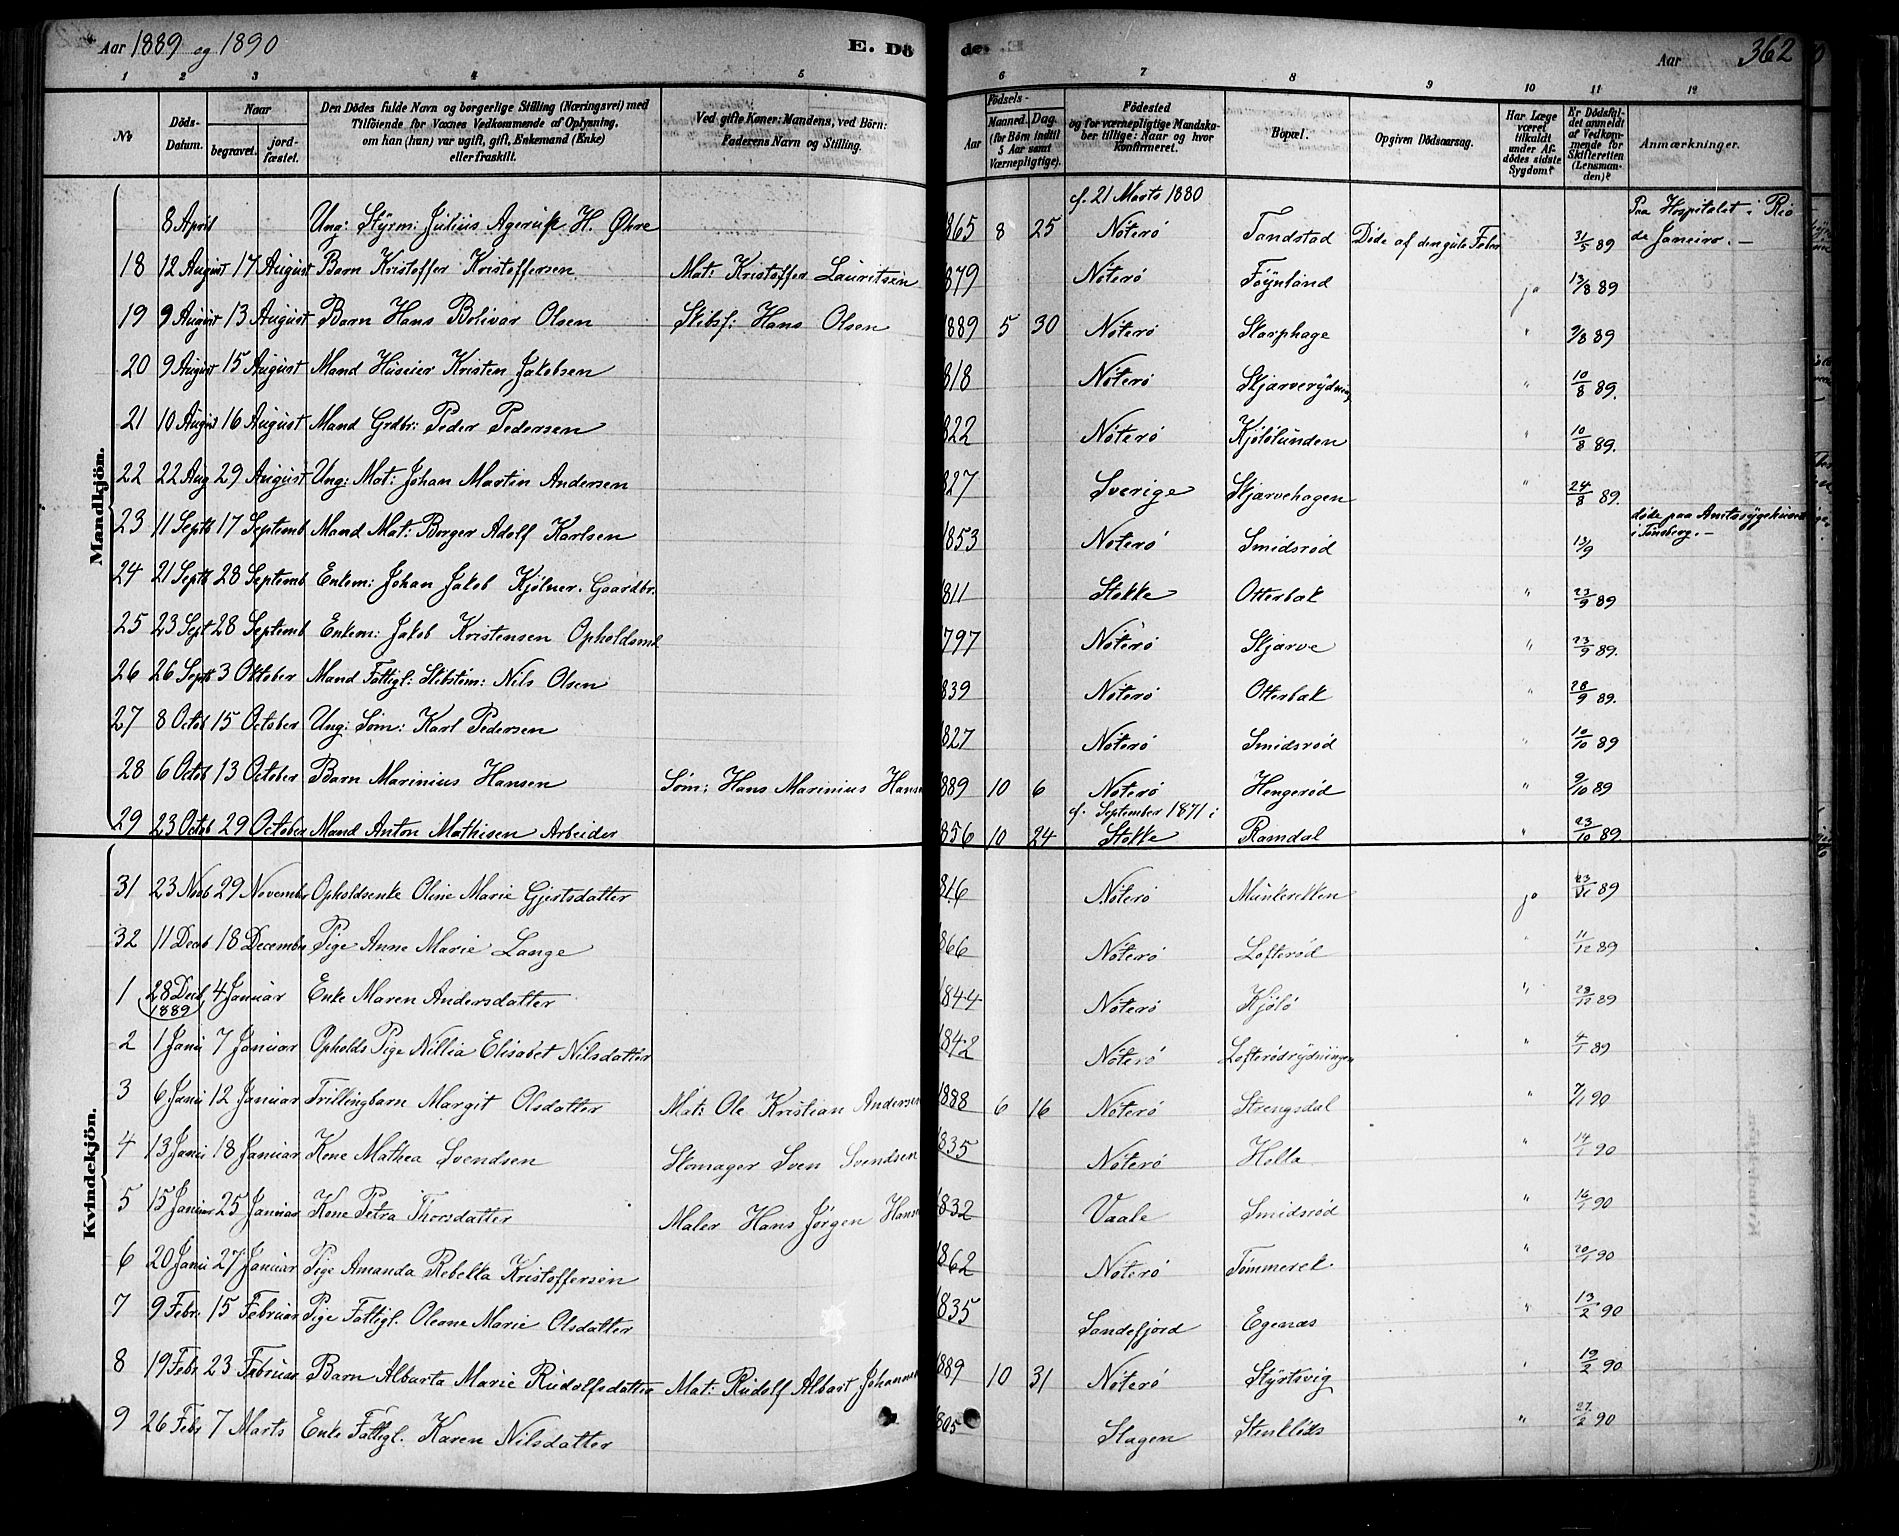 Aar 1889 og 1890 E. Dö
de. Aar 362
1 2 3 4 5
6 7 8 9 10 11 12
No
Döds-Datum.
Naar
begravet.
jordfæstet.
Den Dödes fulde Navn og borgerlige Stilling (Næringsvei) med
Tilföiende for Voxnes Vedkommende af Oplysning,
om han (hun) var ugift, gift, Enkemand (Enke)
eller fraskilt.
Ved gifte Koner: Mandens, ved Börn:
Faderens Navn og Stilling.
Födsels-
Aar
Maaned. Dag.
(for Börn indtil
5 Aar samt
Værnepligtige).
Födested
og for værnepligtige Mandska-
ber tillige: Naar og hvor
Konfirmeret.
Bopæl.
Opgiven Dödsaarsag.
Har Læge
været
tilkaldt
under Af-
dödes sidste
Sygdom?
Er Dödsfal-
det anmeldt
af Vedkom-
mende for
Skifteretten
(Lensman-
den)?
Anmærkninger.
Mandkjön.
8 April Ung: Styrm: Julius Agerup H. Øhre 1865 8 25 cf. 21 Marts 1880 Nöterö Tandstad Døde af den gule Feber 31/5 89 Paa Hospitalet i Rio de Janeiro. —
18 12 August 17 August Barn Kristoffer Kristoffersen Mat: Kristoffer Lauritsen 879 Nöterö Föynland ja 13/8 89
19 9 August 13 August Barn Hans Bolivar Olsen Skibsf: Hans Olsen 889 5 30 Nöterö Skarphage " 9/8 89
20 9 August 15 August Mand Huseier Kristen Jakobsen 818 Nöterö Skjærverydning " 10/8 89.
21 10 August 16 August Mand Grdbr: Peder Pedersen 822 Nöterö Kjölölunden " 10/8 89.
22 22 Aug 29 August Ung: Mat: Johan Martin Andersen 827 Sverige Skjærvehagen " 24/8 89.
23 11 Septb 17 Septemb Mand Mat: Borger Adolf Karlsen 1853 Nöterö Smidsrød 13/9 døde paa Amtssygehuset i Tönsberg. —
24 21 Septb 28 Septemb Enkem: Johan Jakob Kjölner. Gaardbr. 811 Stokke Otterbak " 23/9 89
25 23 Sept 28 Septemb Enkem: Jakob Kristensen Opholdsmd 797 Nöterö Skjærve " 23/9 89.
26 26 Septb 3 Oktober Mand Fattigl: Skibstöm: Nils Olsen 839 Nöterö Otterbak " 28/9 89.
27 8 Octob 15 October Ung: Söm: Karl Pedersen 827 Nöterö Smidsrød " 10/10 89
28 6 Octob 13 October Barn Marinius Hansen Söm: Hans Marinius Hans 889 10 6 Nöterö Hengerød " 9/10 89
29 23 Octob 29 October Mand Anton Mathisen Arbeider 856 10 24 cf. September 1871 i Stokke Ramdal " 23/10 89.
Kvindekjön.
31 23 Novb 29 November Opholdsenke Oline Marie Gjertsdatter 816 Nöterö Munkerekken ja 23/11 89
32 11 Decb 18 December Pige Anne Marie Lange 866 Nöterö Lofterød " 11/12 89
1 28 Decb 1889 4 Januar Enke Maren Andersdatter 1844 Nöterö Kjölö " 28/12 89
2 1 Janu 7 Januar Opholds Pige Nillia Elisabet Nilsdatter 1842 Nöterö Lofterødrydningen " 4/1 89
3 6 Janu 12 Januar Trillingbarn Margit Olsdatter Mat: Ole Kristian Andersen 1888 6 16 Nöterö Strengsdal " 7/1 90
4 13 Janu 18 Januar Kone Mathea Svendsen Skomager Sven Svendsen 835 Nöterö Hella " 14/1 90
5 15 Januar 25 Januar Kone Petra Thorsdatter Maler Hans Jörgen Hans 1832 Vaale Smidsrød " 16/1 90
6 20 Janu 27 Januar Pige Amanda Rebekka Kristoffersen 1862 Nöterö Tömmerel " 20/1 90
7 9 Febr. 15 Februar Pige Fattigl. Oleane Marie Olsdatter 1835 Sandefjord Egenæs " 13/2 90
8 19 Febr 23 Februar Barn Albarta Marie Rudolfsdatter Mat: Rudolf Albart Johannes 1889 10 31 Nöterö Styrtsvig " 19/2 90
9 26 Febr 7 Marts Enke Fattigl. Karen Nilsdatter 805 Slagen Stenklöds " 27/2 90